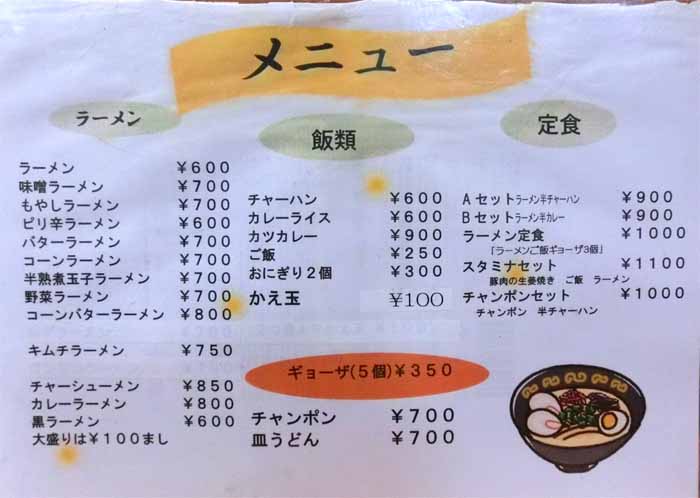 メニュー
ラーメン
ラーメン ￥600
味噌ラーメン ￥700
もやしラーメン ￥700
ピリ辛ラーメン ￥600
バターラーメン ￥700
コーンラーメン ￥700
半熟煮玉子ラーメン ￥700
野菜ラーメン ￥700
コーンバターラーメン ￥800
キムチラーメン ￥750
チャーシューメン ￥850
カレーラーメン ￥800
黒ラーメン ￥600
大盛りは￥100まし
飯類
チャーハン ￥600
カレーライス ￥600
カツカレー ￥900
ご飯 ￥250
おにぎり2個 ￥300
かえ玉 ￥100
ギョーザ(5個)￥350
チャンポン ￥700
皿うどん ￥700
定食
Aセットラーメン半チャーハン ￥900
Bセットラーメン半カレー ￥900
ラーメン定食 ￥1000
「ラーメンご飯ギョーザ3個」
スタミナセット ￥1100
豚肉の生姜焼き ご飯 ラーメン
チャンポンセット ￥1000
チャンポン 半チャーハン